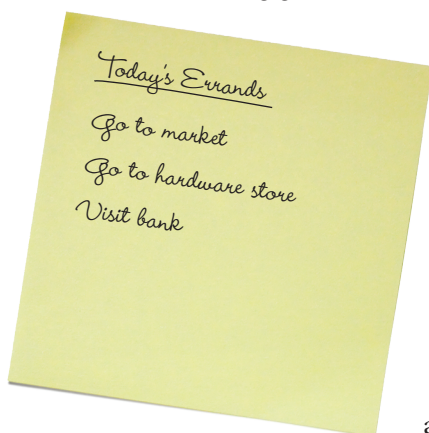 Today's Errands
Go to market
Go to hardware store
Visit bank